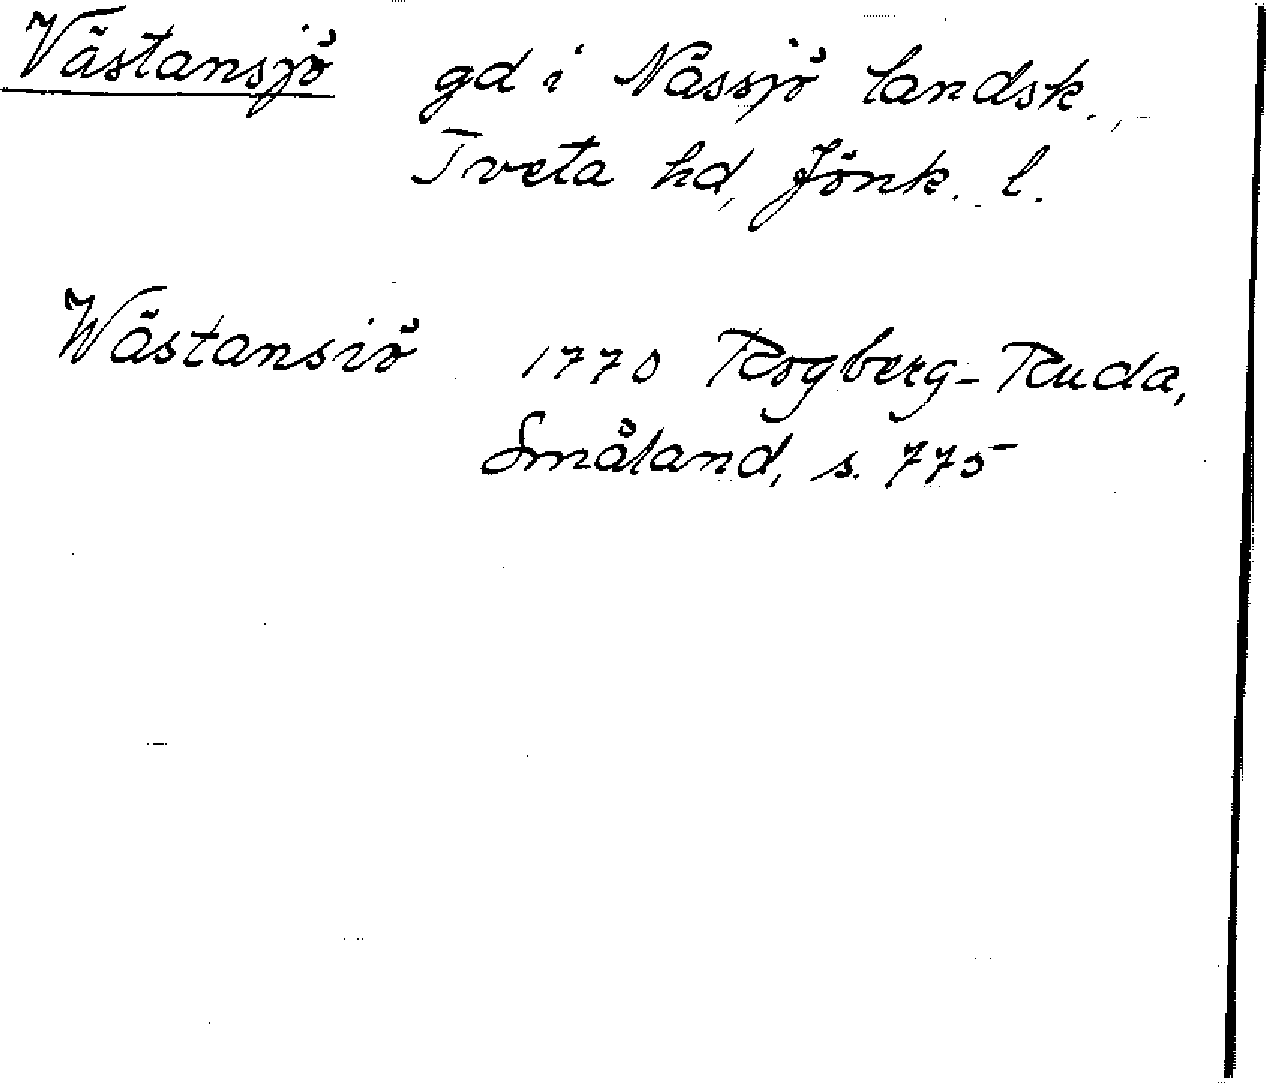 Västansjö gd i Nässjö landsk.,
Tveta hd, Jönk. l.
Wästansiö 1770 Rogberg-Ruda,
Småland, s. 775